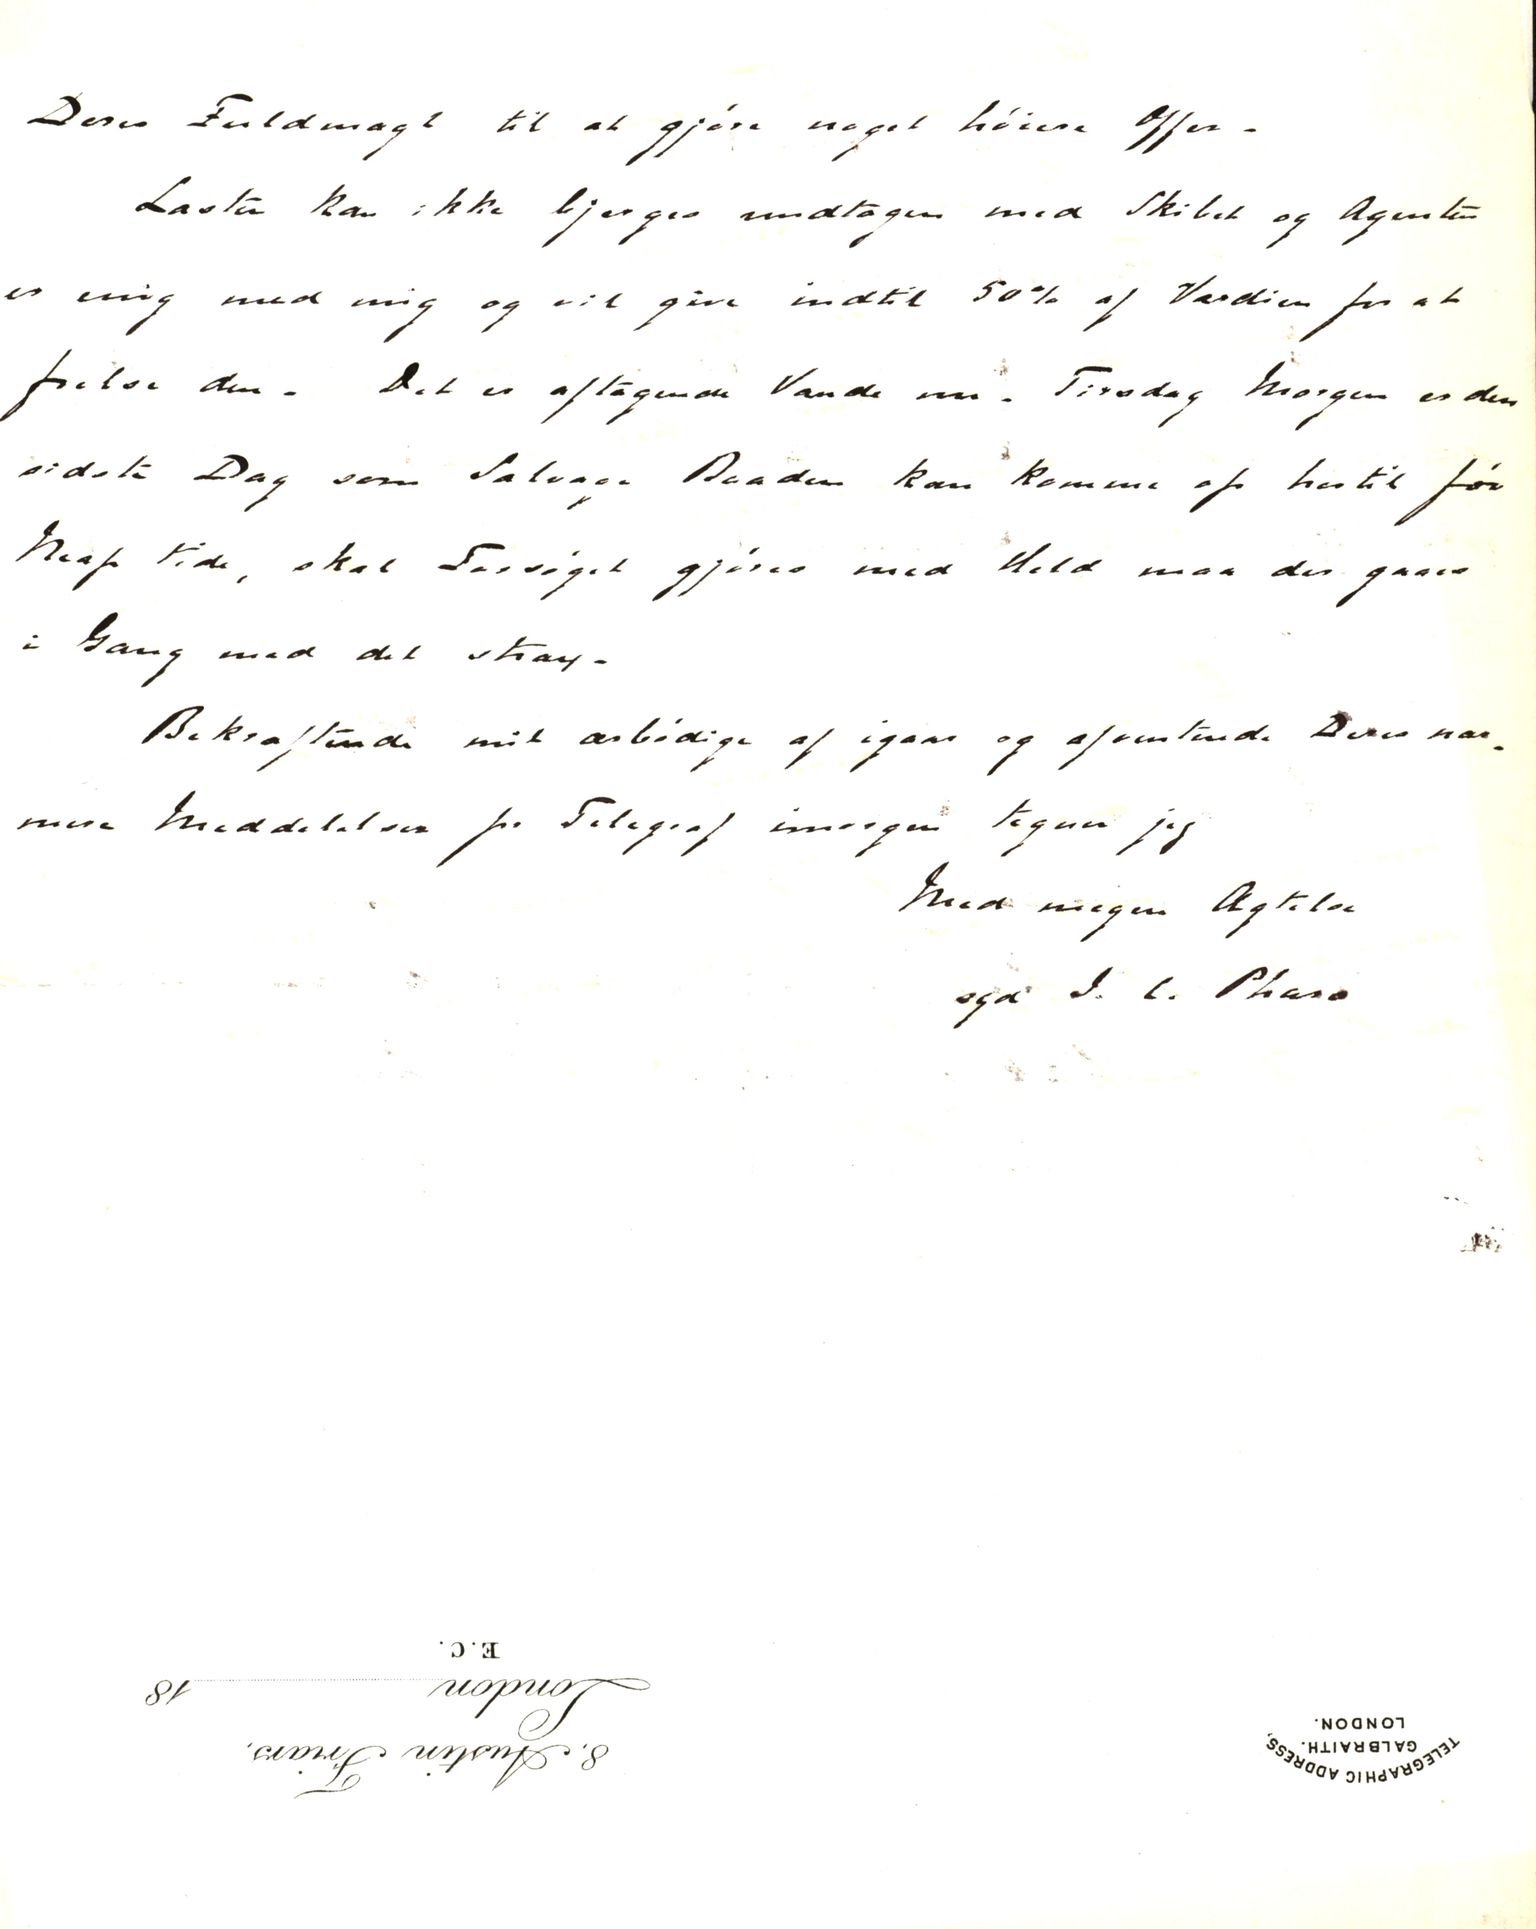 Deres Fuldmagt til at gjøre noget høiere Offer.
Lasten kan ikke bjerges undtagen med Skibet og Agenten
er enig med mig og vil give indtil 50% af Værdien for at
frelse den. Det er aftagende Vande nu. Tirsdag Morgen er den
sidste Dag som Salvage Baaden kan komme op hertil før
Neap tide, skal Forsøget gjøres med Held maa der gaaes
i Gang med det strax.
Bekræftende mit ærbödige af igaar og afventende Deres nær-
mere Meddelelser pr Telegraf imorgen tegner jeg
Med megen Agtelse
sgd J. C. Pharo
8. Austin Friars,
London 18
E.C.
TELEGRAPHIC ADDRESS,
GALBRAITH.
LONDON.